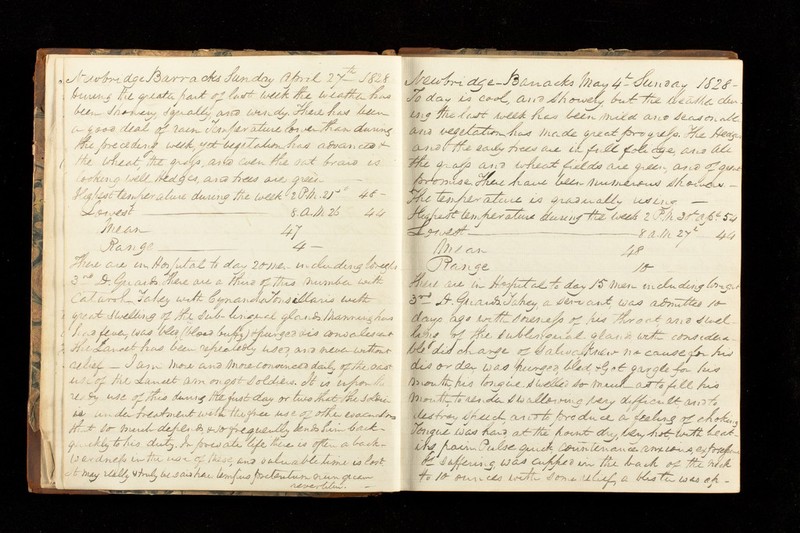 Newbridge Barracks Sunday April 27th 1828
During the greater part of last week the weather has
been showery squally and windy. There has been
a good deal of rain. Temperature lower than during
the preceding week, yet vegetation has advanced &
the wheat, the grass, and even the braird is
looking well. Hedges, and trees are green
Highest temperature during the week 2 P.M. 21st 48 -
Lowest 8 A.M. 26 44
Mean 47
Range 4 -
There are in Hospital to day 20 men including
3rd D. Guards There are a third of this number with
Catarrh. Fahey with Cynanche Tonsillaris with
great swelling of the sublingual glands. Manning has
had fever, was bled (blood buffy) & purged & is convalescent
the Lancet has been repeatedly used, and never without
relief - I am more and more convinced daily of the
use of the Lancet amongst Soldiers. It is upon the
use of this during the first day or two that the soldier
is under treatment with the free use of other evacuants
that so much depends, & so frequently sends him back
quickly to his duty. In private life there is often a back-
wardness in the use of these, and valuable time is lost
it may really & truly be said here tempus
Newbridge - Barracks May 4th Sunday 1828 -
To day is cool, and showery but the weather dur-
ing the last week has been mild and seasonable
and vegetation has made great progress. The
and the early trees are in full foliage, and all
the grass and wheat fields are green, and of great
promise. There have been numerous showers -
The temperature is gradually rising -
Highest temperature during the week 2 P.M. 54
Lowest 8 A.M. 27th 44
Mean 48
Range 10
There are in Hospital to day 15 men including
3rd D. Guards. Fahey a servant, was admitted 10
days ago with soreness of his throat and swel-
ling of the sublingual gland with considera-
ble discharge of saliva. Knew no cause for his
disorder was purged, bled, & got gargle for his
mouth, his tongue swelled so much as to fill his
mouth, to render swallowing very difficult and to
destroy speech, and to produce a feeling of choking
Tongue was hard, at the point dry, very hot, with beat-
ing pain. Pulse quick. Countenance anxious, expressive
of suffering was cupped in the back of the neck
to 10 ounces with some relief, a blister was ap-